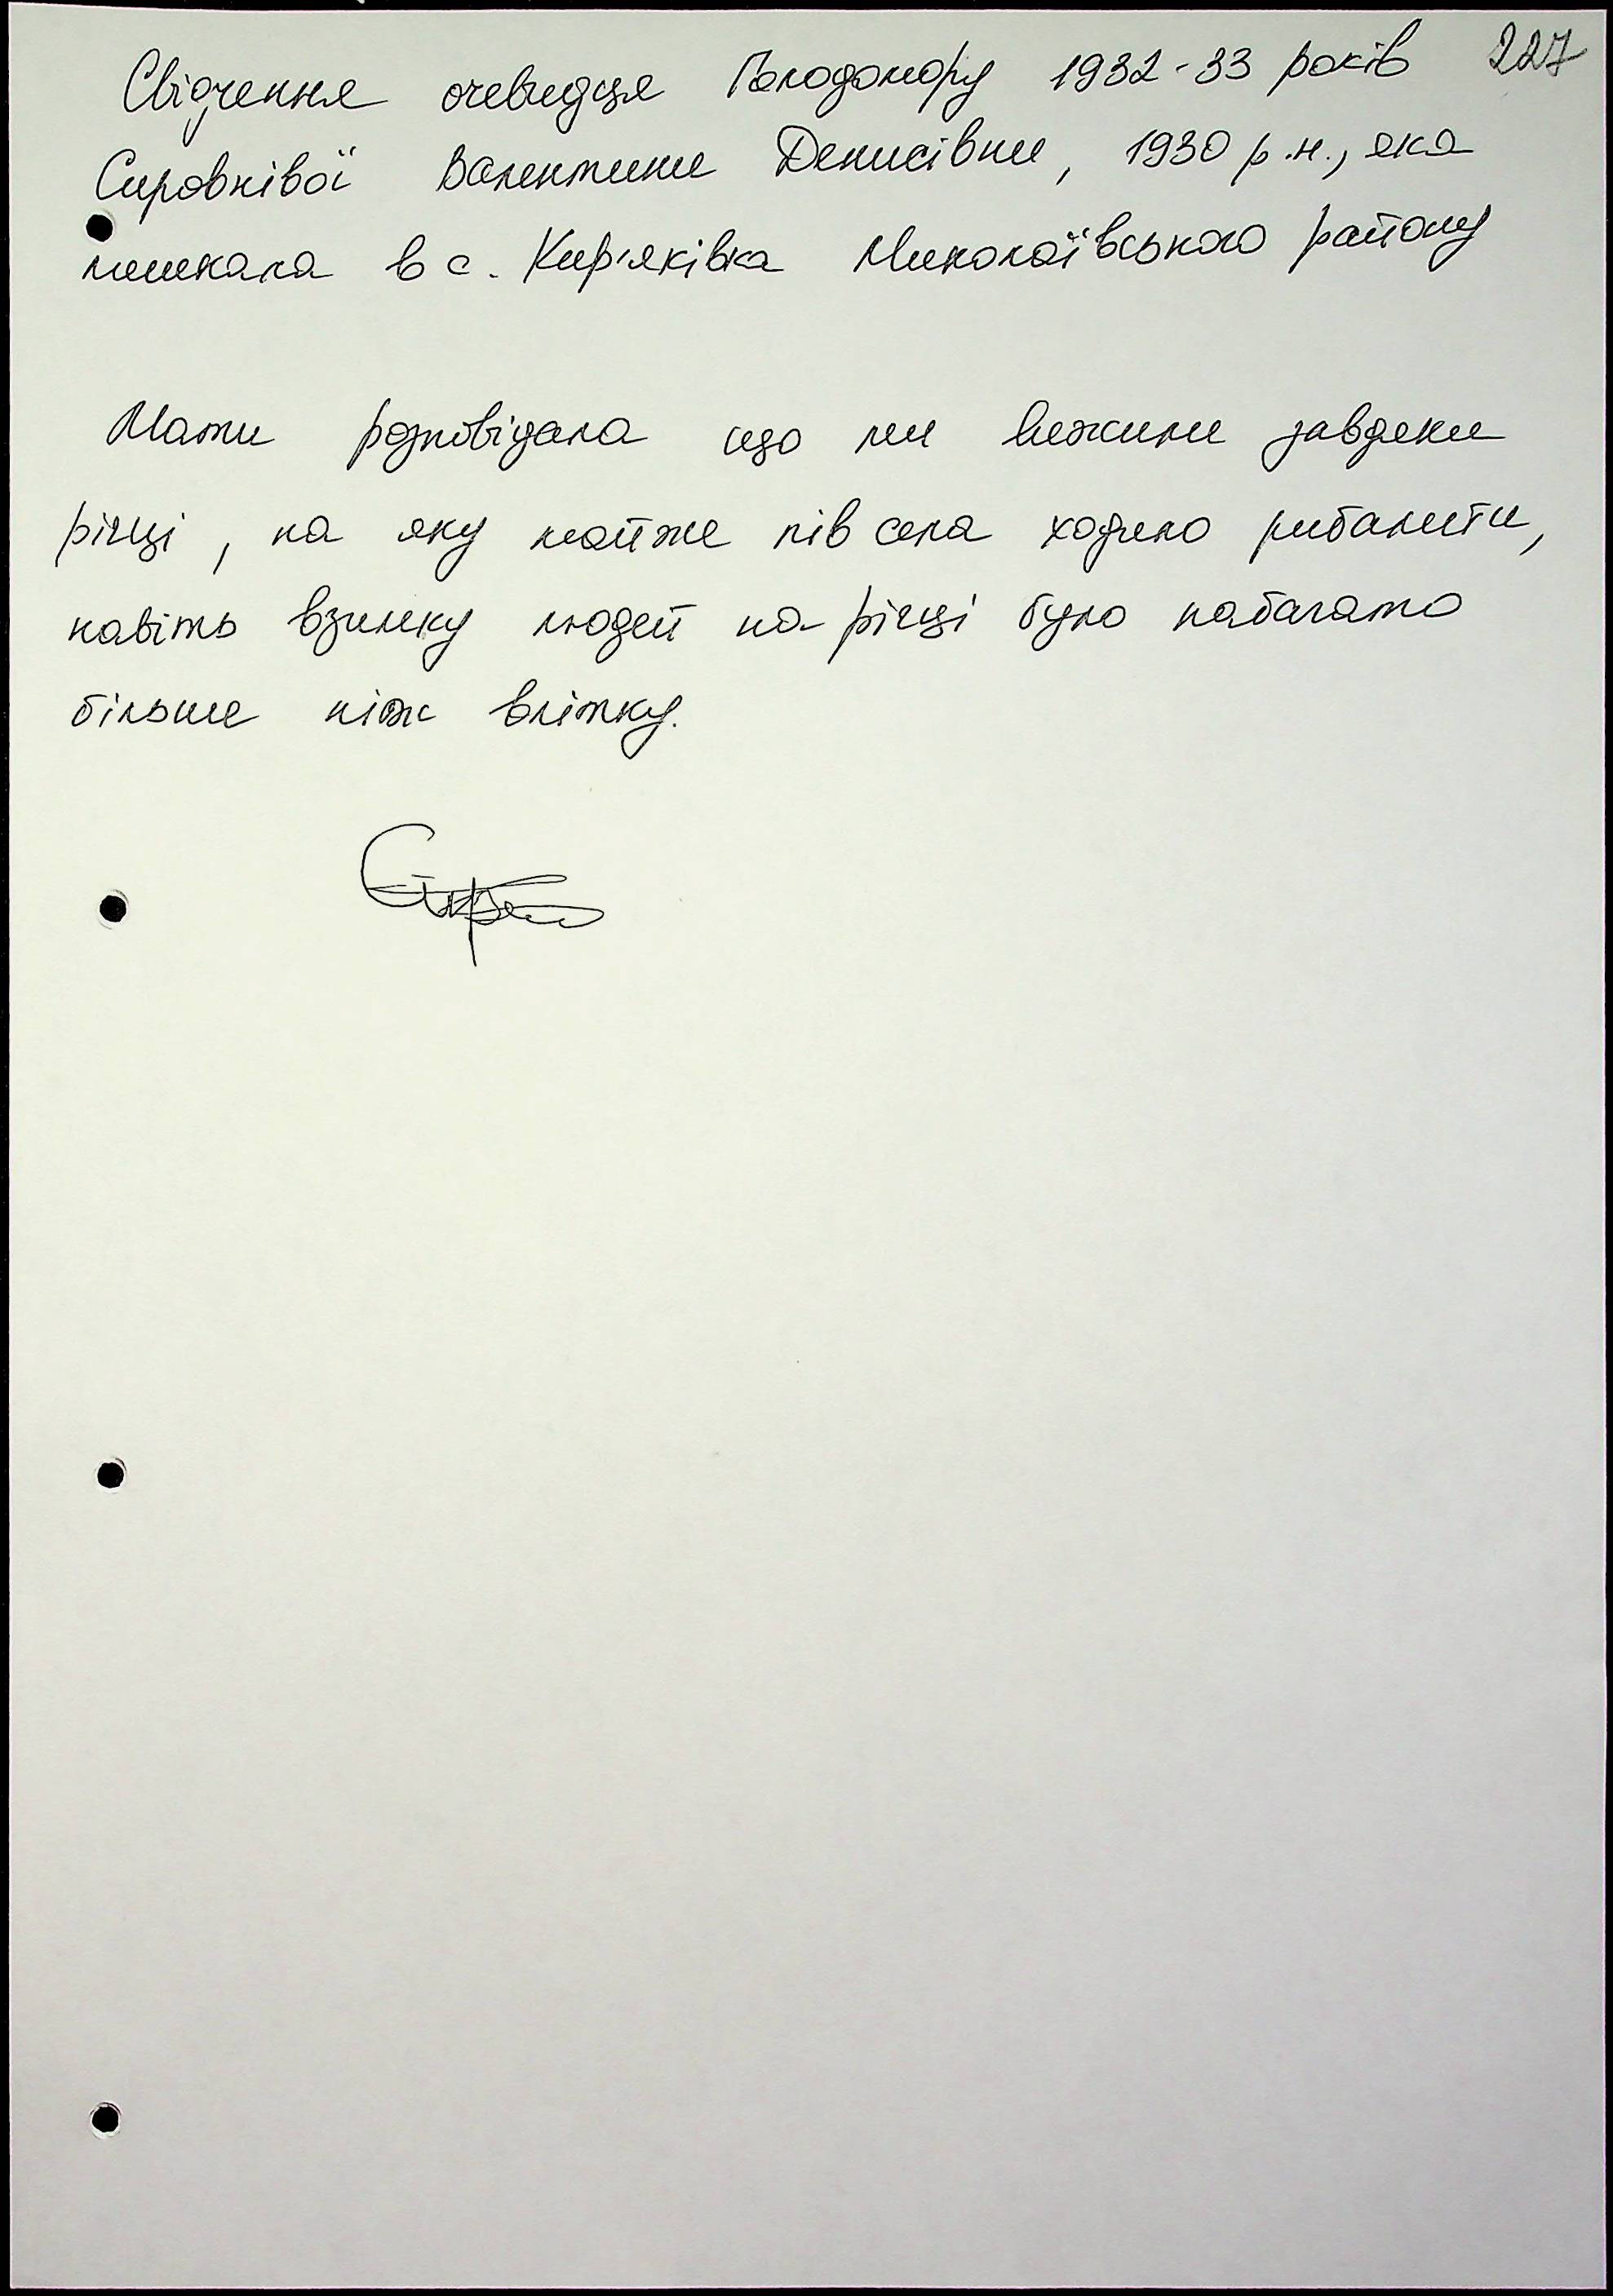 227
Свідчення очевидця Голодомору 1932-33 років
Сировківої Валентини Денисівни, 1930 р.н., яка
мешкала в с. Кир'яківка Миколаївського району
Мати розповідала що ми вижили завдяки
річці, на яку майже пів села ходило рибалити,
навіть взимку людей на річці було набагато
більше ніж влітку.